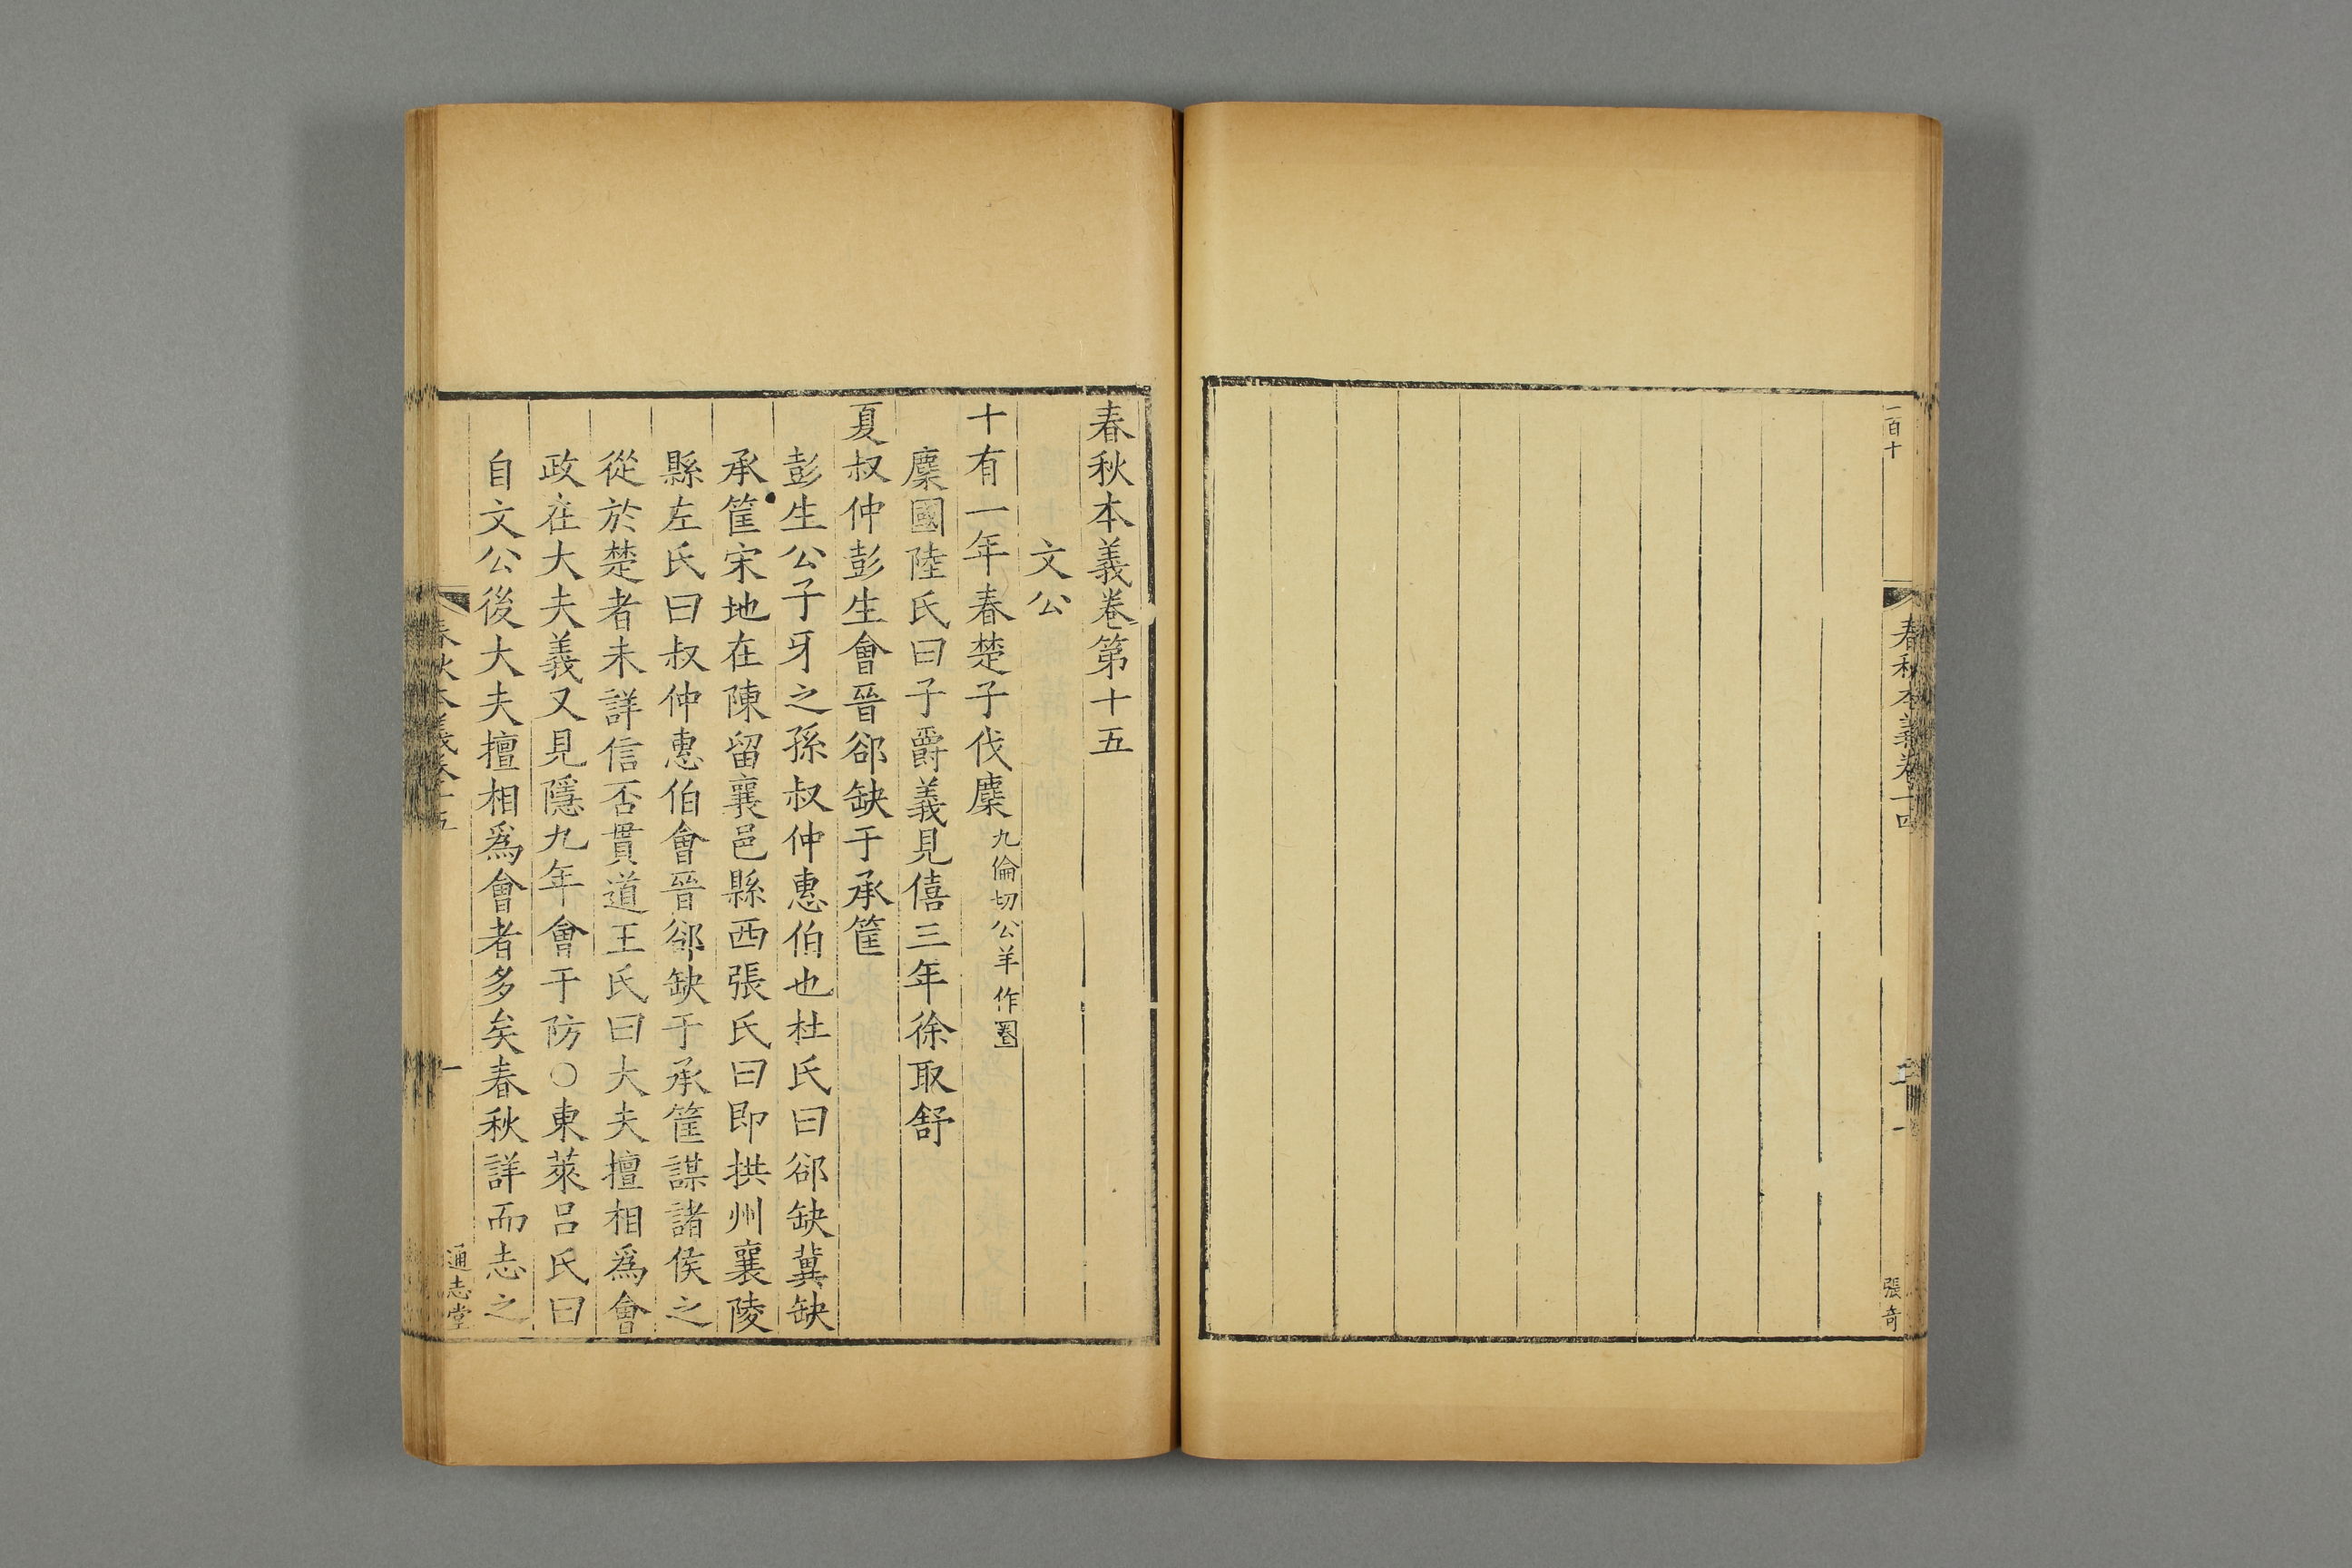 一百十
春秋本義卷十四
張奇
春秋本義卷第十五
文公
十有一年春楚子伐麇九倫切公羊作圈
麇國陸氏曰子爵義見僖三年徐取舒
夏叔仲彭生會晉郤缺于承筐
彭生公子牙之孫叔仲惠伯也杜氏曰郤缺冀缺
承筐宋地在陳留襄邑縣西張氏曰即拱州襄陵
縣左氏曰叔仲惠伯會晉郤缺于承筐謀諸侯之
從於楚者未詳信否貫道王氏曰大夫擅相爲會
政在大夫義又見隱九年會于防○東萊呂氏曰
自文公後大夫擅相爲會者多矣春秋詳而志之
春秋本義卷十五
一
通志堂